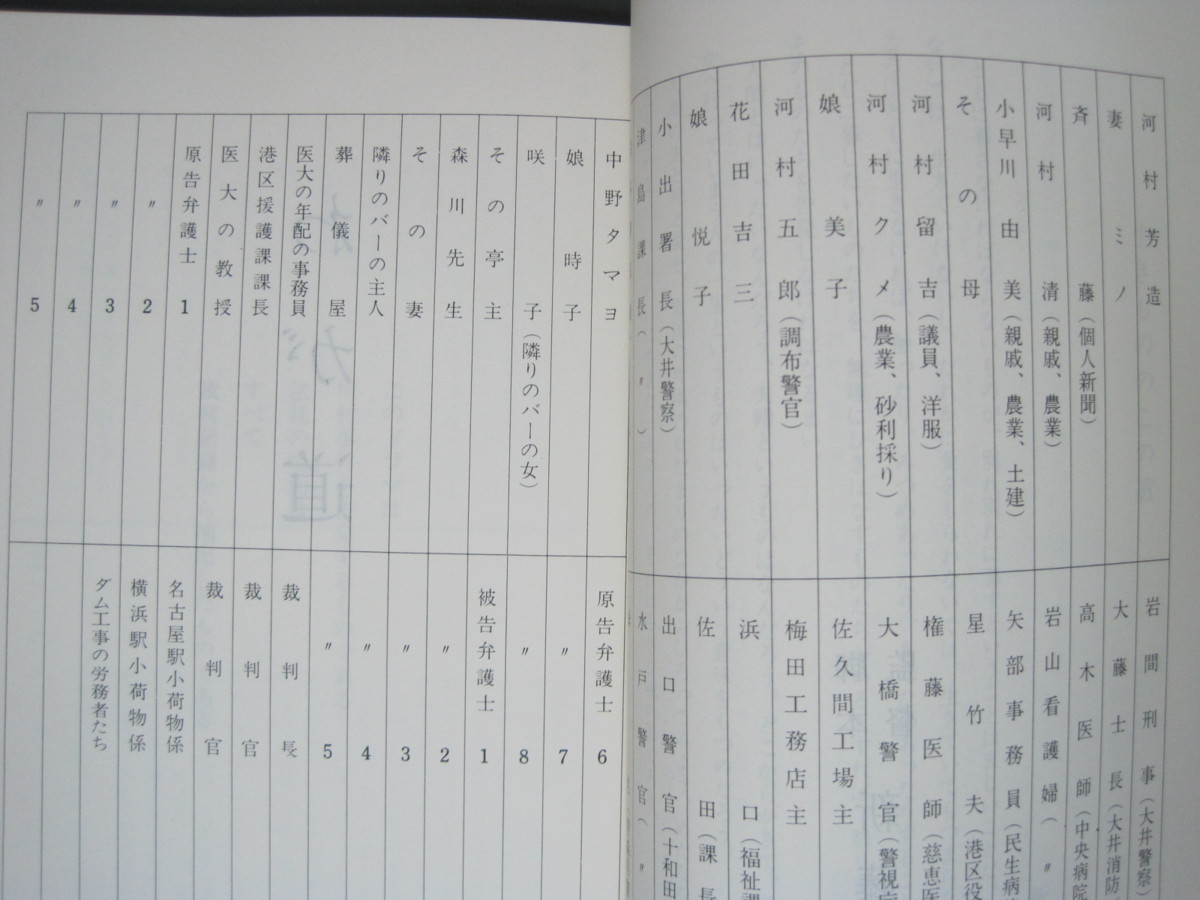 河村芳造
妻ミノ
斉藤（個人新聞）
河村清（親戚、農業）
小早川由美（親戚、農業、土建）
その母
河村留吉（議員、洋服）
河村クメ（農業、砂利採り）
娘美子
河村五郎（調布警官）
花田吉三
娘悦子
小出署長（大井警察）
津島課長（〃）
岩間刑事（大井警察）
大藤士長（大井消防
高木医師（中央病院
岩山看護婦（〃
矢部事務員（民生病
星竹夫（港区役
権藤医師（慈恵医
大橋警官（警視庁
佐久間工場主
梅田工務店主
浜口（福祉課
佐田（課長
出口警官（十和田
水戸警官（〃
中野タマヨ
娘時子
咲子（隣りのバーの女）
その亭主
森川先生
その妻
隣りのバーの主人
葬儀屋
医大の年配の事務員
港区援護課課長
医大の教授
原告弁護士1
〃2
〃3
〃4
〃5
原告弁護士6
〃7
〃8
被告弁護士1
〃2
〃3
〃4
〃5
裁判長
裁判官
裁判官
名古屋駅小荷物係
横浜駅小荷物係
ダム工事の労務者たち